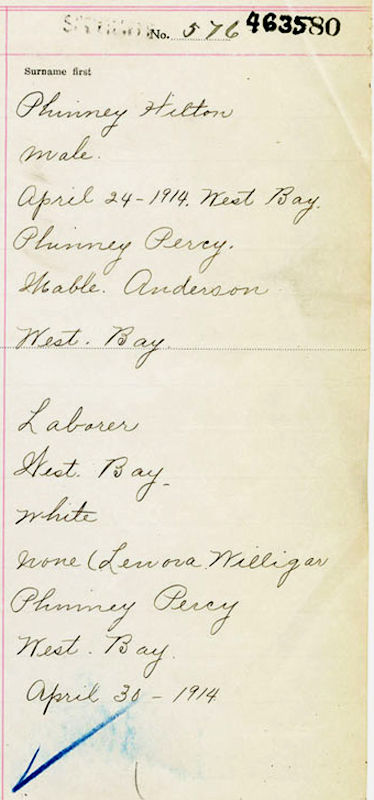 No. 576 46358O
Surname first
Phinney Hilton
male.
April 24-1914. West Bay.
Phinney Percy.
Mable. Anderson
West. Bay.
Laborer
West. Bay.
White
none (Lenora Willigar
Phinney Percy
West. Bay.
April 30 - 1914